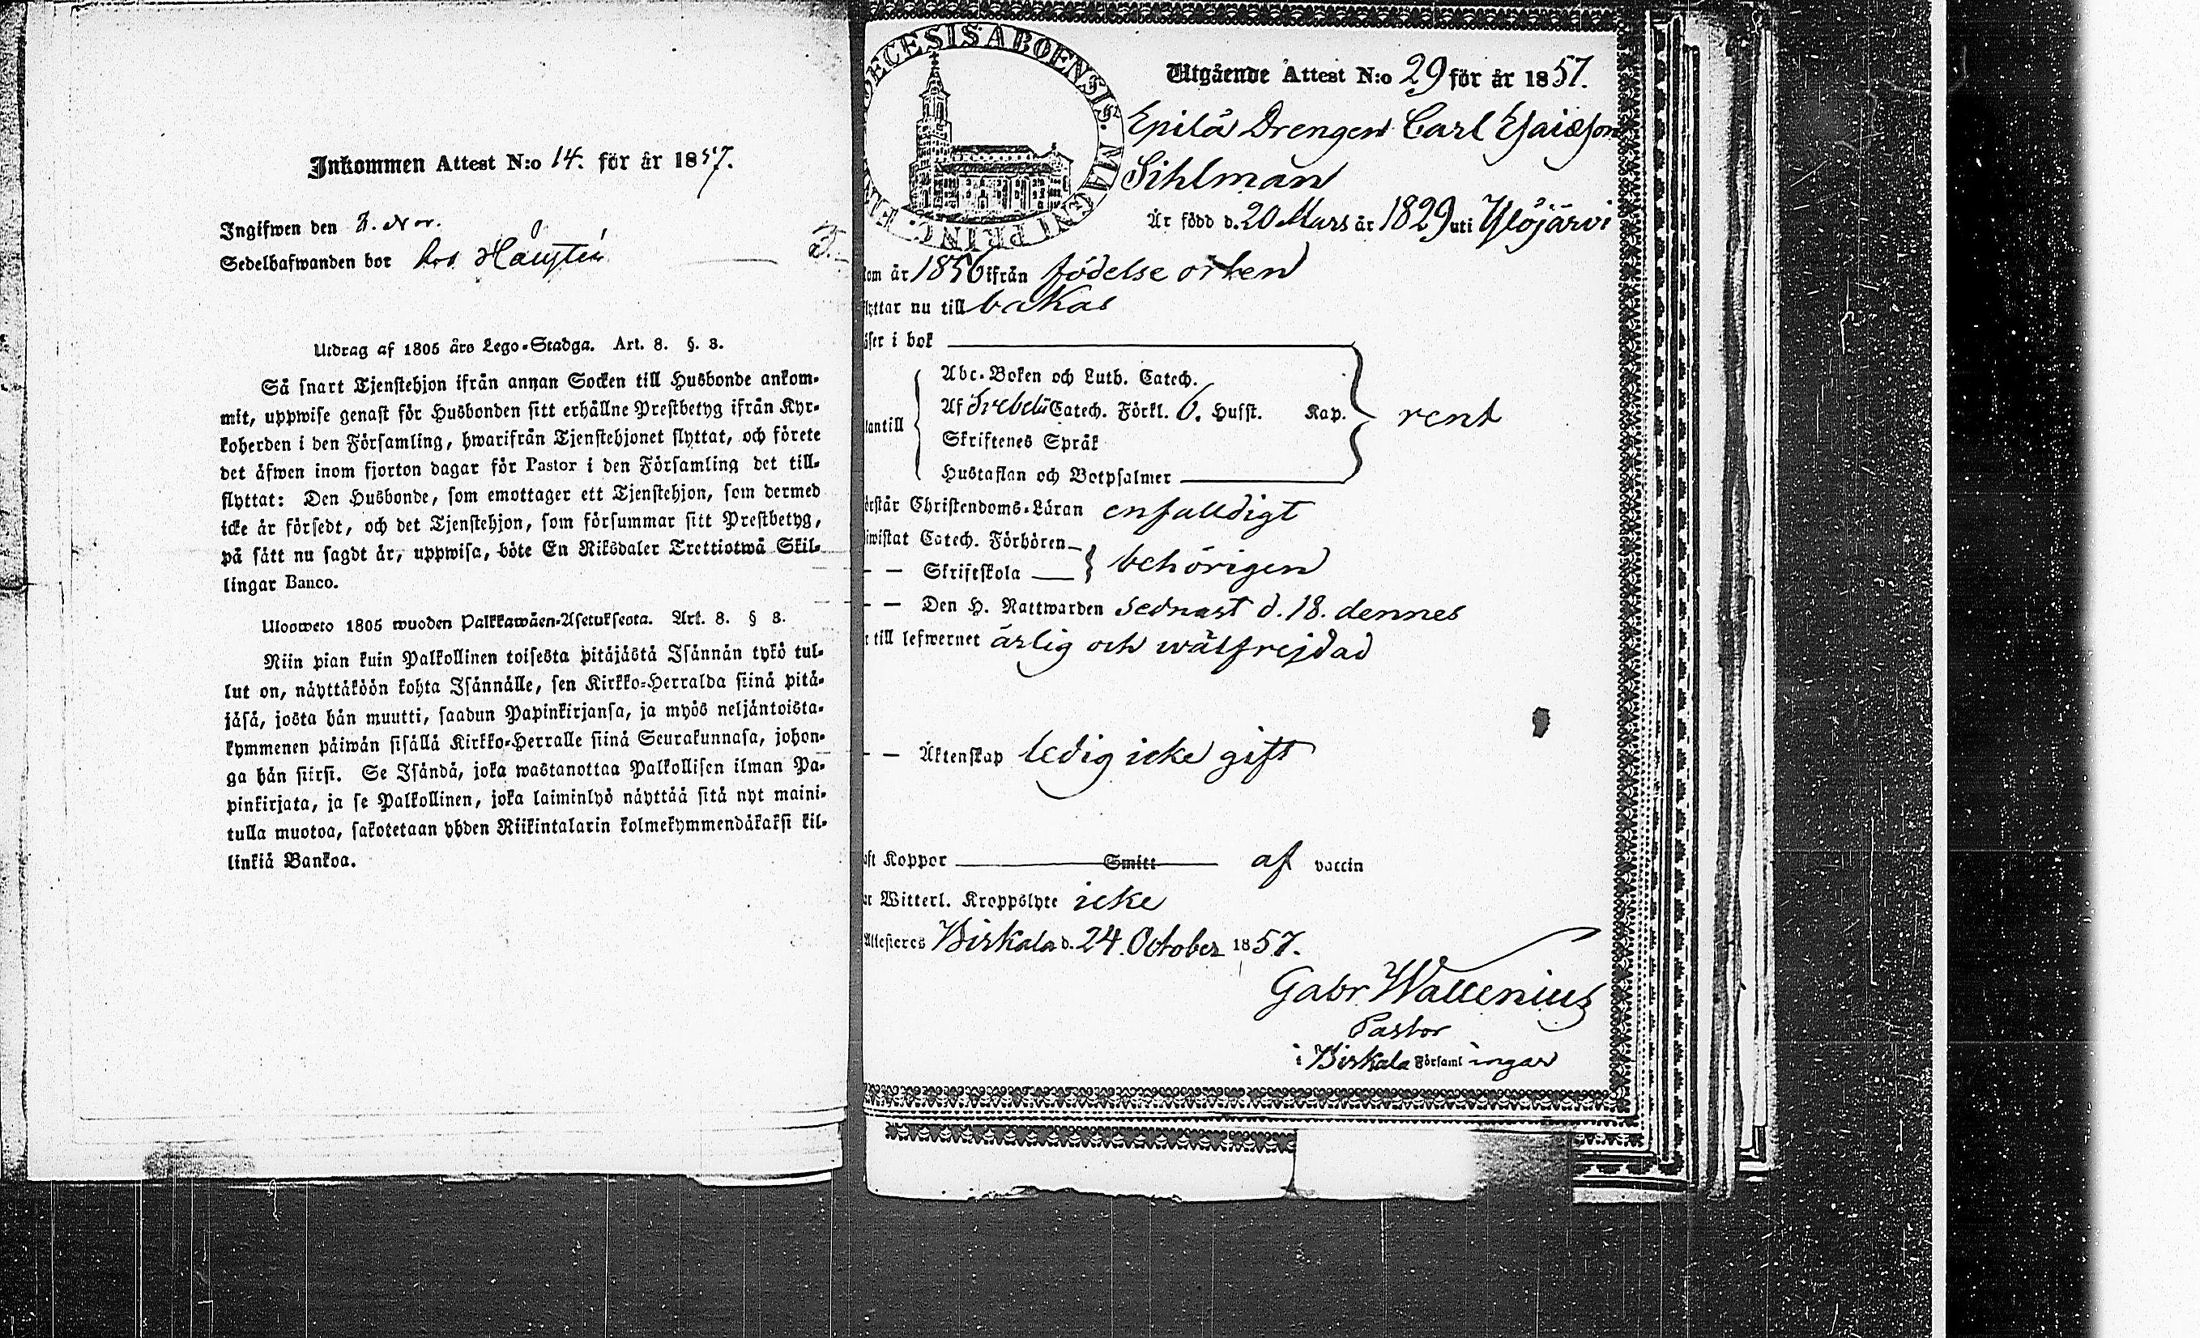 Inkommen Attest N:o 14. för år 1857.
Ingifwen den 3. Nov.
Sedelhafwanden bor hos
Utdrag af 1805 års Lego-Stadga. Art. 8. §. 3.
Så snart Tjenstehjon ifrån annan Socken till Husbonde ankom-
mit, uppwise genast för Husbonden sitt erhållne Prestbetyg ifrån Kyr-
koherden i den Församling, hwarifrån Tjenstehjonet flyttat, och förete
det äfwen inom fjorton dagar för Pastor i den Församling det till-
flyttat: Den Husbonde, som emottager ett Tjenstehjon, som dermed
icke är försedt, och det Tjenstehjon, som försummar sitt Prestbetyg,
på sätt nu sagdt är, uppwisa, böte En Riksdaler Trettiotwå Skil-
lingar Banco.
Ulosweto 1805 wuoden Palkkawäen-Asetuksesta. Art. 8. § 3.
Niin pian kuin Palkollinen toisesta pitäjästä Isännän tykö tul-
lut on, näyttäköön kohta Isännälle, sen Kirkko-Herralda siinä pitä-
jäsä, josta hän muutti, saadun Papinkirjansa, ja myös neljäntoista-
kymmenen päiwän sisällä Kirkko-Herralle siinä Seurakunnasa, johon-
ga hän siirsi. Se Isändä, joka wastanottaa Palkollisen ilman Pa-
pinkirjata, ja se Palkollinen, joka laiminlyö näyttää sitä nyt maini-
tulla muotoa, sakotetaan yhden Riikintalarin kolmekymmendäkaksi kil-
linkiä Bankoa.
ŒCESIS ABOENSIS. MAGNI PRINC. FIN
Utgående Attest N:o 29 för år 1857.
Epilä Drengen Carl Esaiæson
Sihlman
Är född d. 20 Mars år 1829 uti Ylöjärvi
kom år 1856 ifrån födelse orten
flyttar nu till bakas
läser i bok
Abc-Boken och Luth. Catech.
Af Svebelii Catech. Förkl. 6. Hufst. Kap. rent
utantill
Skriftenes Språk
Hustaflan och Botpsalmer
förstår Christendoms-Läran enfalldigt
biwistat Catech. Förhören
— — Skriftskola behörigen
— — Den H. Nattwarden sednast d. 18. dennes
är till lefwernet ärlig och wälfrejdad
— — Äktenskap ledig icke gift
haft Koppor Smitt af vaccin
har Witterl. Kroppslyte icke
Attesteres Birkala d. 24 October 1857.
Gabr. Wallenius
Pastor
i Birkala Församl ingar